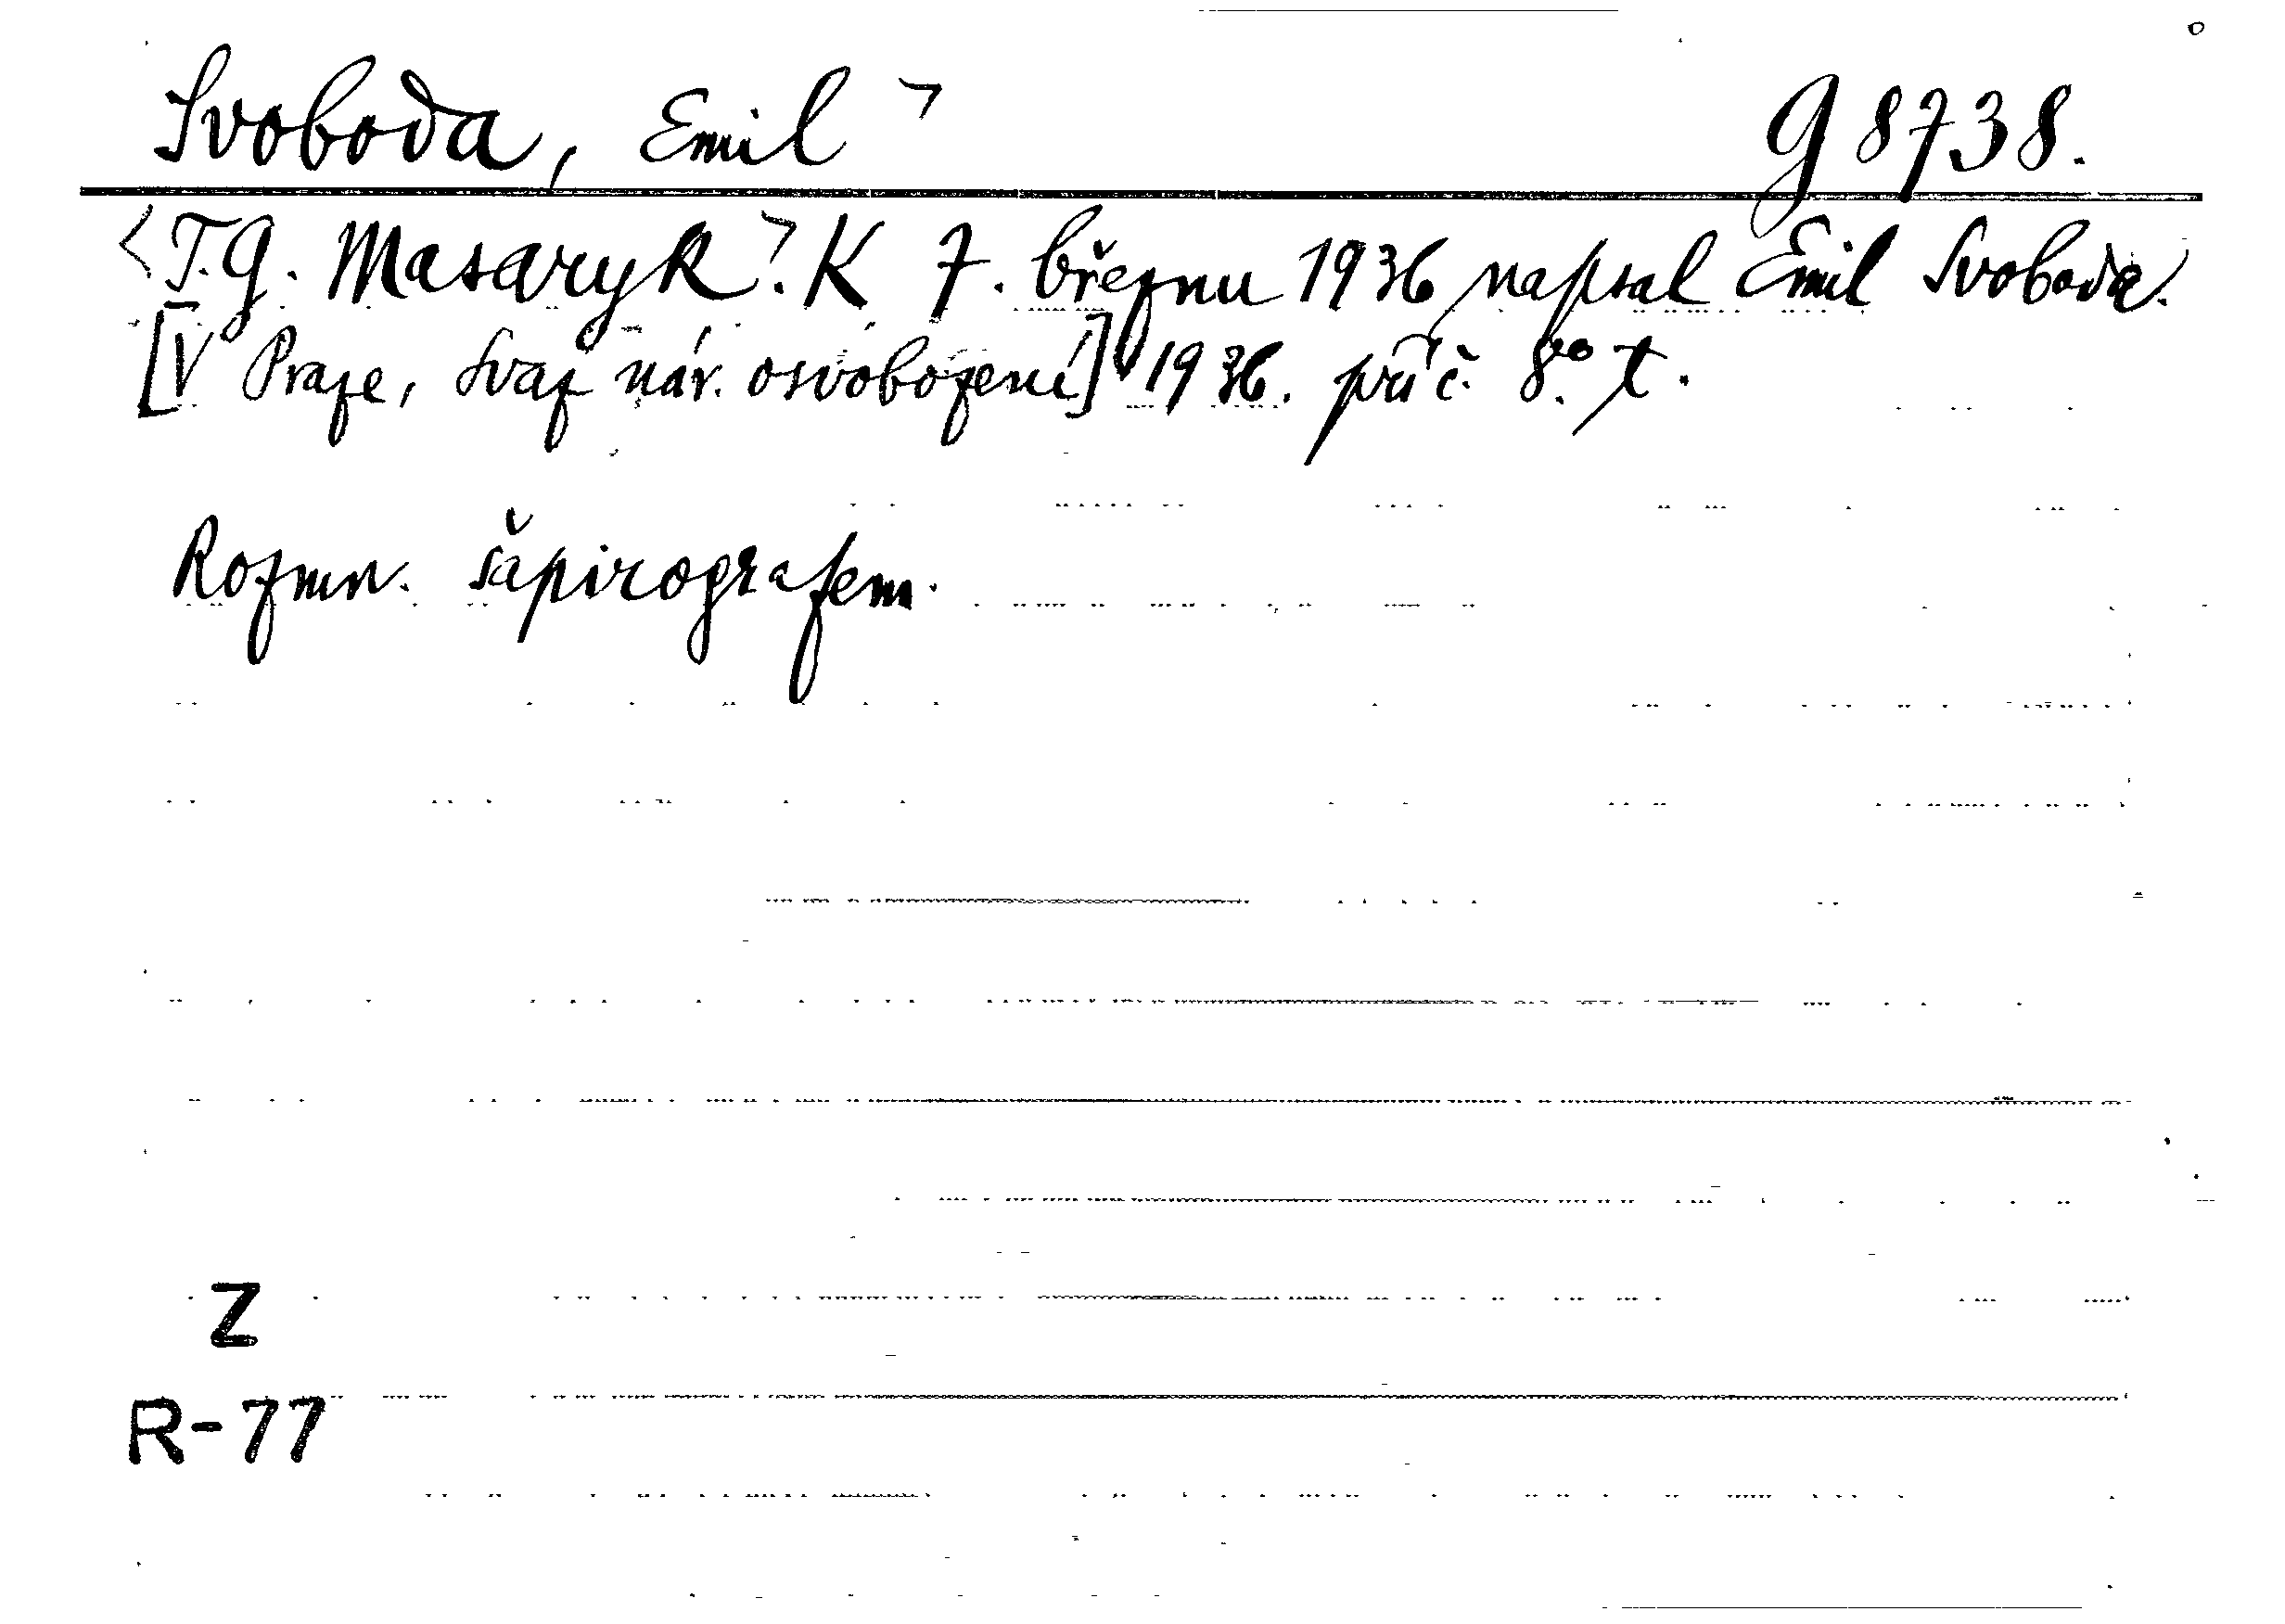 Svoboda, Emil ⌝ g 8738.
<T.G. Masaryk⌝. K 7. březnu 1936 napsal Emil Svoboda.
[V Praze, Svaz nár. osvobození] 1936. prův. č. 8° t.
Rozmn. šapirografem.
Z
R-77